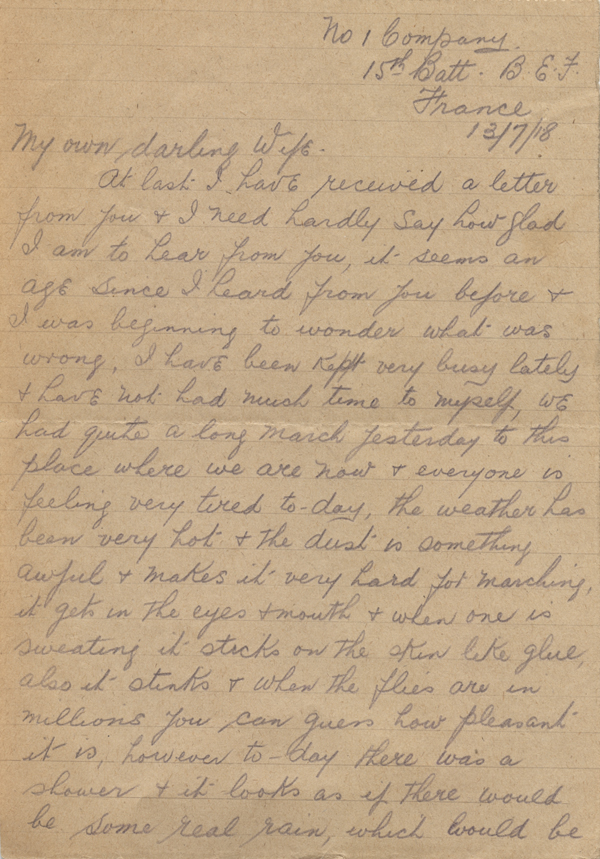 No 1 Company.
15th Batt. B.E.F.
France
13/7/18
My own darling Wife.
At last I have received a letter
from you & I need hardly say how glad
I am to hear from you, it seems an
age since I heard from you before &
I was beginning to wonder what was
wrong, I have been kept very busy lately
& have not had much time to myself, we
had quite a long march yesterday to this
place where we are now & everyone is
feeling very tired to-day, the weather has
been very hot & the dust is something
awful & makes it very hard for marching,
it gets in the eyes & mouth & when one is
sweating it sticks on the skin like glue,
also it stinks & when the flies are in
millions you can guess how pleasant
it is, however to-day there was a
shower & it looks as if there would
be some real rain, which would be